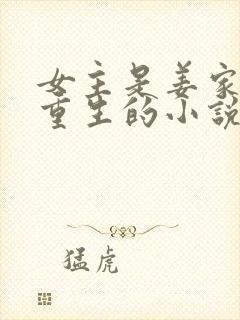 女主是姜家
重生的小説
猛虎